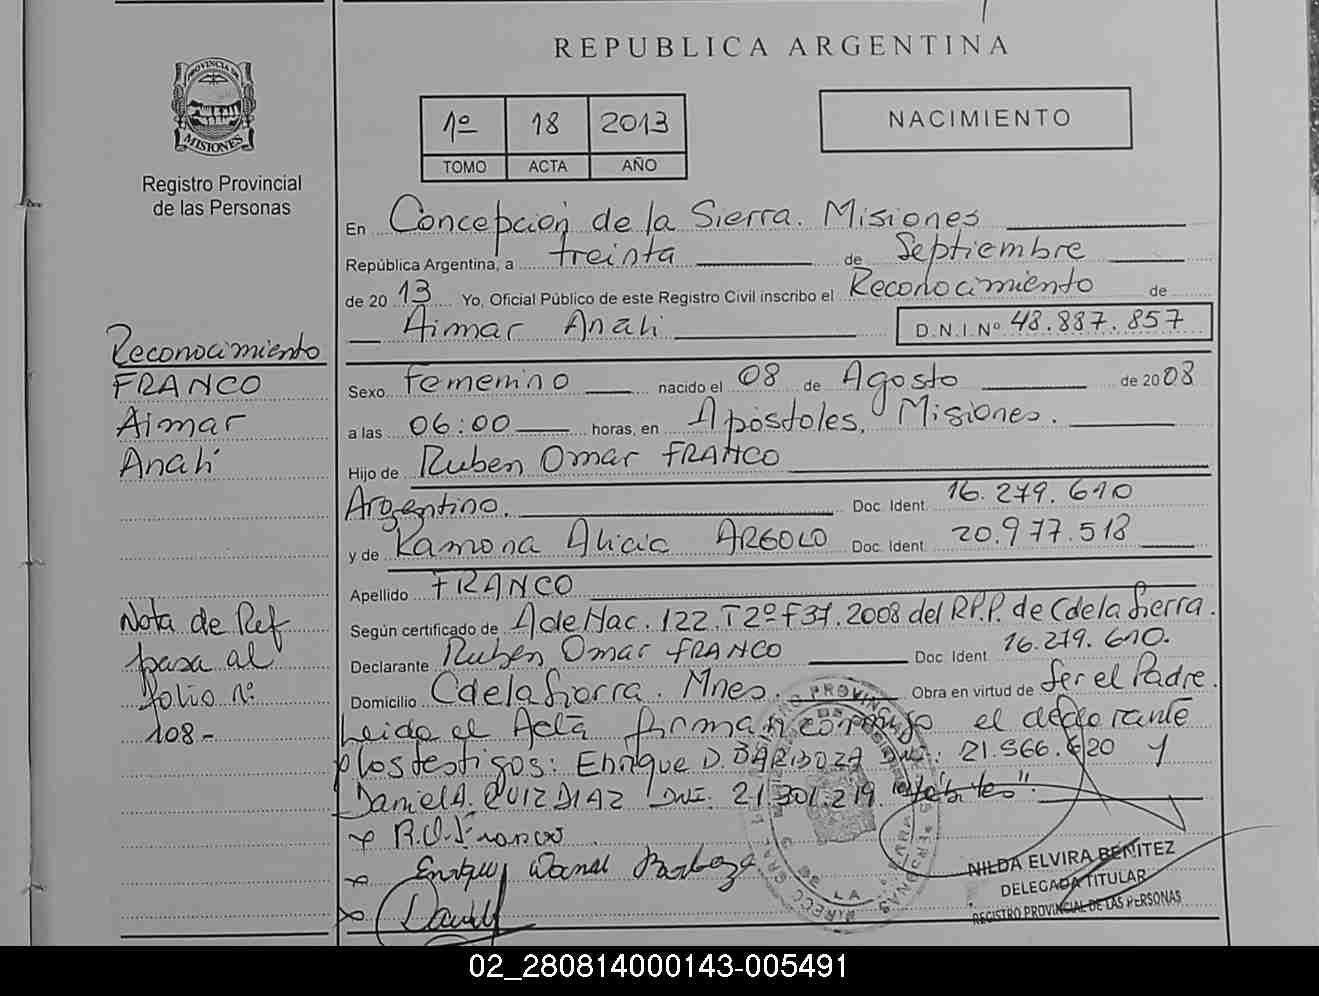 REPUBLICA ARGENTINA
PROVINCIA DE
MISIONES
Registro Provincial
de las Personas
1º 18 2013
TOMO ACTA AÑO
NACIMIENTO
En Concepción de la Sierra. Misiones
República Argentina, a treinta de Septiembre
de 20 13 Yo, Oficial Público de este Registro Civil inscribo el Reconocimiento de
Aimar Anahi D.N.I.Nº 48.887.857
Reconocimiento
FRANCO
Aimar
Anahí
Sexo femenino nacido el 08 de Agosto de 2008
a las 06:00 horas, en Apóstoles, Misiones.
Hijo de Ruben Omar FRANCO
Argentino. Doc. Ident. 16.279.610
y de Ramona Alicia ARGOLO Doc. Ident. 20.977.518
Apellido FRANCO
Según certificado de A de Nac. 122. T2º F37. 2008 del R.P.P. de C de la Sierra.
Declarante Ruben Omar FRANCO Doc. Ident 16.279.610.
Domicilio C de la Sierra. Mnes. Obra en virtud de Ser el Padre.
Nota de Ref
pasa al
folio nº
108-
Leida el Acta firman conmigo el declarante
y los testigos: Enrique D. BARBOZA DNI: 21.566.620 y
Daniel A. RUIZ DIAZ DNI. 21.301.219.
x R.O. Franco
x Enrique Daniel Barboza
x
NILDA ELVIRA BENITEZ
DELEGADA TITULAR
REGISTRO PROVINCIAL DE LAS PERSONAS
02_280814000143-005491